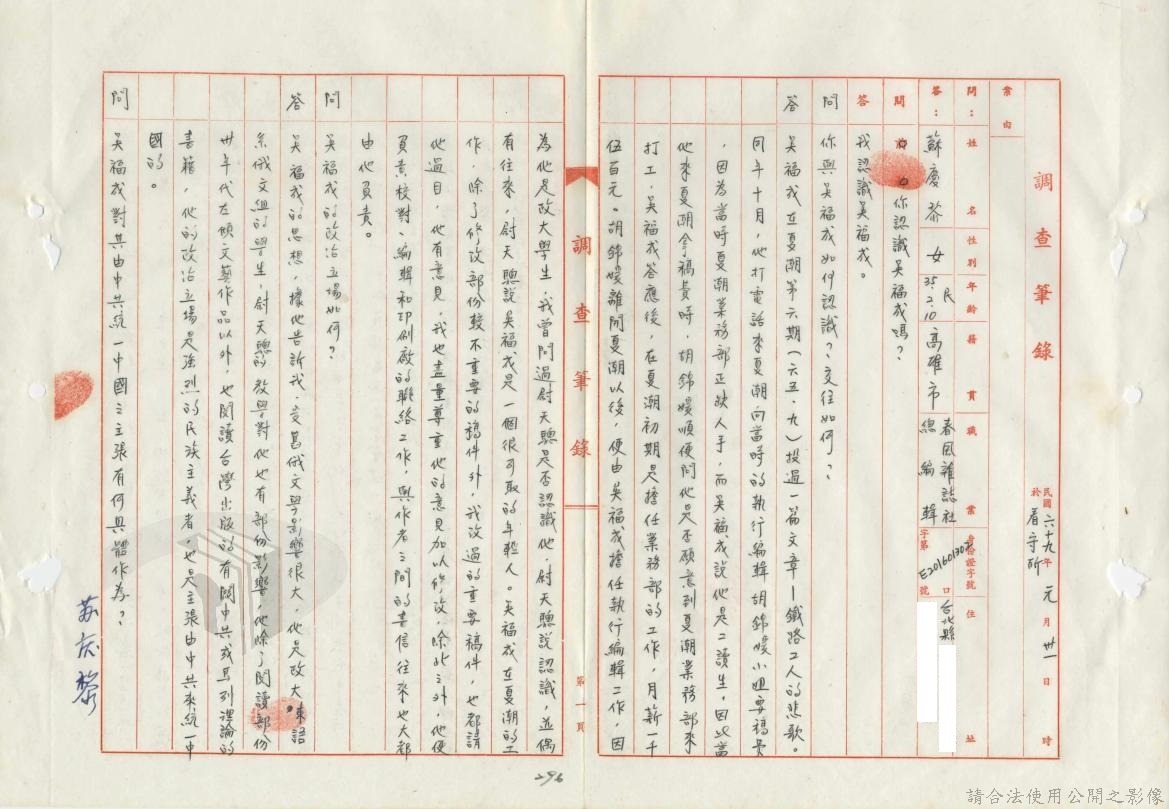 調查筆錄
民國六十九年元月卅一日 時
於看守所
案由
問：姓名 性別 年齡 籍貫 職業 身份證字號 住址
答：蘇慶黎 女 民35.2.10 高雄市 春風雜誌社總編輯 字第 號 台北縣
問 你認識吳福成嗎？
答 我認識吳福成。
問 你與吳福成如何認識？交往如何？
答 吳福成在夏潮第六期（六五、九）投過一篇文章—鐵路工人的悲歌。
同年十月，他打電話來夏潮向當時的執行編輯胡錦媛小姐要稿費
，因為當時夏潮業務部正缺人手，而吳福成說他是二讀生，因此當
他來夏潮拿稿費時，胡錦媛順便問他是否願意到夏潮業務部來
打工，吳福成答應後，在夏潮初期是擔任業務部的工作，月薪一千
伍百元。胡錦媛離開夏潮以後，便由吳福成擔任執行編輯工作，因
調查筆錄
第一頁
為他是政大學生，我曾問過尉天驄是否認識他，尉天驄說認識，並偶
有往來，尉天驄說吳福成是一個很可取的年輕人。吳福成在夏潮的工
作，除了修改部份較不重要的稿件外，我改過的重要稿件，也都請
他過目，他有意見，我也盡量尊重他的意見加以修改，除此之外，他便
負責校對、編輯和印刷廠的聯絡工作，與作者之間的書信往來也大都
由他負責。
問 吳福成的政治立場如何？
答 吳福成的思想，據他告訴我，受舊俄文學影響很大，他是政大東語
系俄文組的學生，尉天驄的教學對他也有部份影響，他除了閱讀部份
卅年代左傾文藝作品以外，也閱讀台灣出版的有關中共或馬列理論的
書籍，他的政治立場是強烈的民族主義者，也是主張由中共來統一中
國的。
問 吳福成對其由中共統一中國之主張有何具體作為？
蘇慶黎
296
請合法使用公開之影像